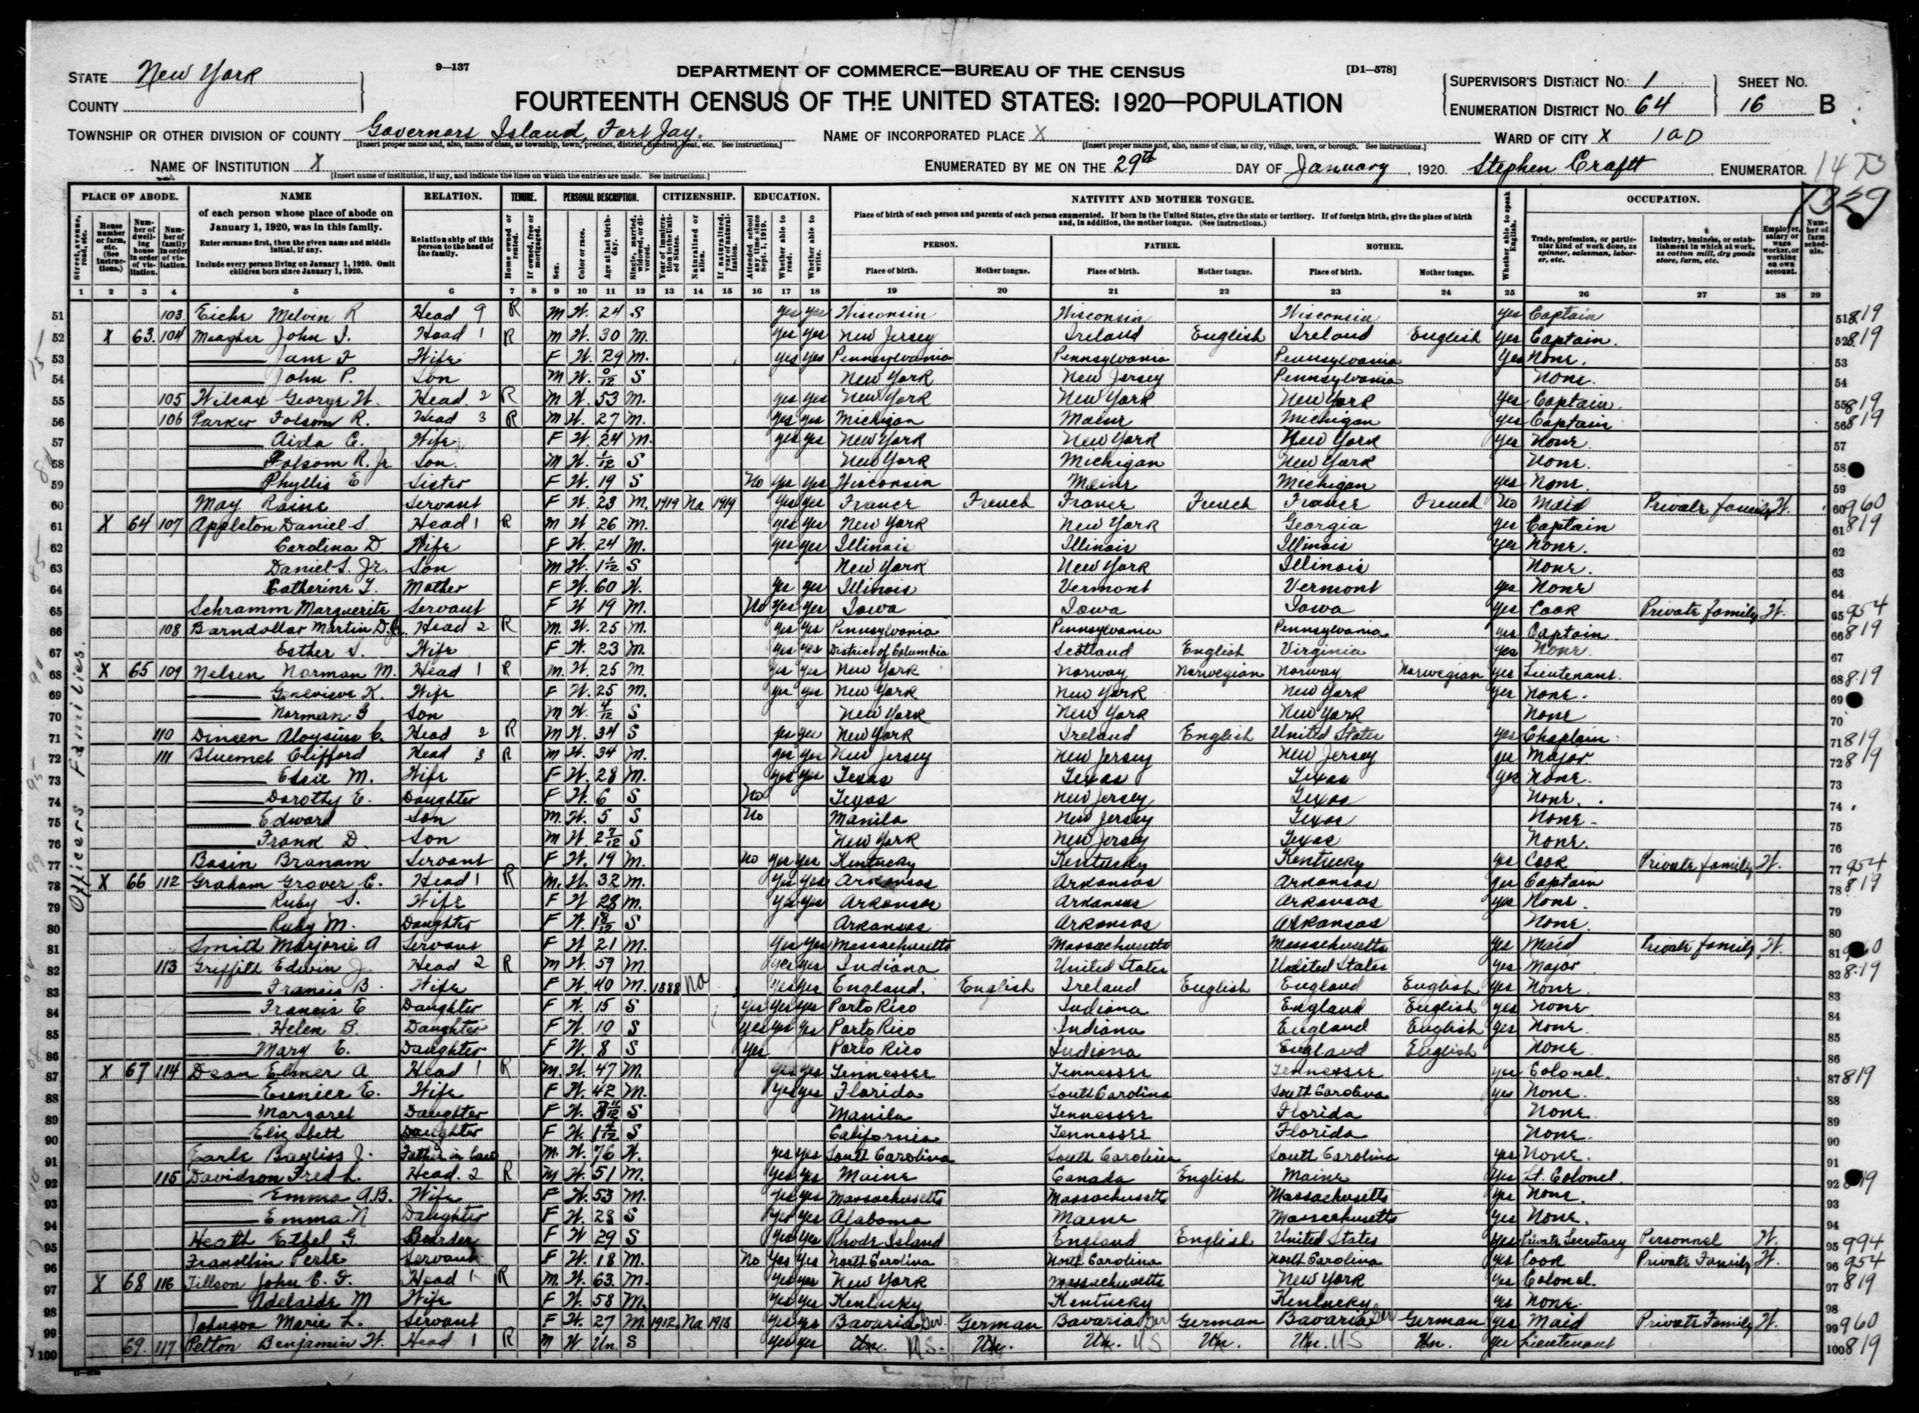 9—137
[D1—578]
STATE New York
COUNTY
DEPARTMENT OF COMMERCE—BUREAU OF THE CENSUS
FOURTEENTH CENSUS OF THE UNITED STATES: 1920—POPULATION
SUPERVISOR'S DISTRICT NO. 1
ENUMERATION DISTRICT NO. 64
SHEET NO. 16 B
TOWNSHIP OR OTHER DIVISION OF COUNTY Governors Island, Fort Jay.
NAME OF INCORPORATED PLACE X
WARD OF CITY X 1 A D
NAME OF INSTITUTION X
ENUMERATED BY ME ON THE 29th DAY OF January, 1920. Stephen Craftt ENUMERATOR.
PLACE OF ABODE. NAME RELATION. TENURE. PERSONAL DESCRIPTION. CITIZENSHIP. EDUCATION. NATIVITY AND MOTHER TONGUE. OCCUPATION.
of each person whose place of abode on January 1, 1920, was in this family.
Enter surname first, then the given name and middle initial, if any.
Include every person living on January 1, 1920. Omit children born since January 1, 1920.
Relationship of this person to the head of the family.
Place of birth of each person and parents of each person enumerated. If born in the United States, give the state or territory. If of foreign birth, give the place of birth and, in addition, the mother tongue. (See instructions.)
PERSON. FATHER. MOTHER.
Place of birth. Mother tongue. Place of birth. Mother tongue. Place of birth. Mother tongue.
1 2 3 4 5 6 7 8 9 10 11 12 13 14 15 16 17 18 19 20 21 22 23 24 25 26 27 28 29
Officers Families
51 103 Eicher Melvin R Head 9 R M W. 24 S yes yes Wisconsin Wisconsin Wisconsin yes Captain 819
52 X 63 104 Meagher John J. Head 1 R M W. 30 M. yes yes New Jersey Ireland English Ireland English yes Captain 819
53 Jane F Wife F W. 29 M. yes yes Pennsylvania Pennsylvania Pennsylvania yes None.
54 John P. Son M W. 0/12 S New York New Jersey Pennsylvania None.
55 105 Wilcox George W. Head 2 R M W. 53 M. yes yes New York New York New York yes Captain 819
56 106 Parker Folsom R. Head 3 R M W. 27 M. yes yes Michigan Maine Michigan yes Captain 819
57 Aida C. Wife F W. 24 M. yes yes New York New York New York yes None
58 Folsom R. Jr. Son M W. 1/12 S New York Michigan New York None.
59 Phyllis E Sister F W. 19 S No yes yes Wisconsin Maine Michigan yes None.
60 May Raine Servant F W. 23 M. 1919 Na 1919 yes yes France French France French France French No Maid Private family W. 960
61 X 64 107 Appleton Daniel S. Head 1 R M W. 26 M. yes yes New York New York Georgia yes Captain 819
62 Carolina D Wife F W. 24 M. yes yes Illinois Illinois Illinois yes None.
63 Daniel S. Jr. Son M W. S New York New York Illinois None.
64 Catherine Mother F W. 60 W. yes yes Illinois Vermont Vermont yes None
65 Schramm Marguerite Servant F W. 19 M. No yes yes Iowa Iowa Iowa yes Cook Private family W. 954
66 108 Barndollar Martin D. Jr. Head 2 R M. W. 25 M. yes yes Pennsylvania Pennsylvania Pennsylvania yes Captain 819
67 Esther S. Wife F W. 23 M. yes yes District of Columbia Scotland English Virginia yes None
68 X 65 109 Nelsen Norman M. Head 1 R M. W. 25 M yes yes New York Norway Norwegian Norway Norwegian yes Lieutenant. 819
69 Genevieve K. Wife F W. 25 M. yes yes New York New York New York yes None.
70 Norman Son M W. 4/12 S New York New York New York None
71 110 Dineen Aloysius C. Head 2 R M W. 34 S yes yes New York Ireland English United States yes Chaplain 819
72 111 Bluemel Clifford Head 3 R M W. 34 M. yes yes New Jersey New Jersey New Jersey yes Major 819
73 Elsie M. Wife F W. 28 M. yes yes Texas Texas Texas yes None
74 Dorothy E. Daughter F W. 6 S No Texas New Jersey Texas None.
75 Edward Son M. W. 5 S No Manila New Jersey Texas None.
76 Frank D. Son M W. 2 7/12 S New York New Jersey Texas None.
77 Basin Branam Servant F W. 19 M. No yes yes Kentucky Kentucky Kentucky yes Cook Private family W. 954
78 X 66 112 Graham Grover C. Head 1 R M. W. 32 M. yes yes Arkansas Arkansas Arkansas yes Captain 819
79 Ruby S. Wife F W. 28 M. yes yes Arkansas Arkansas Arkansas yes None.
80 Ruby M. Daughter F W. S Arkansas Arkansas Arkansas None.
81 Smith Marjorie A Servant F W. 21 M. yes yes Massachusetts Massachusetts Massachusetts yes Maid Private family W. 960
82 113 Griffith Edwin J. Head 2 R M W. 59 M yes yes Indiana United States United States yes Major 819
83 Francis B. Wife F W. 40 M. 1888 Na yes yes England English Ireland English England English yes None.
84 Francis E Daughter F W. 15 S yes yes yes Porto Rico Indiana England English yes None
85 Helen B. Daughter F W. 10 S yes yes yes Porto Rico Indiana England English yes None.
86 Mary E. Daughter F W. 8 S yes Porto Rico Indiana England English None
87 X 67 114 Dean Elmer A Head 1 R M. W. 47 M. yes yes Tennessee Tennessee Tennessee yes Colonel. 819
88 Esenice E. Wife F W. 42 M. yes yes Florida South Carolina South Carolina yes None.
89 Margaret Daughter F W. S Manila Tennessee Florida None.
90 Elizabett Daughter F W. S California Tennessee Florida None.
91 Earle Bayliss J. Father in law M. W. 76 W. yes yes South Carolina South Carolina South Carolina yes None.
92 115 Davidson Fred L. Head 2 R M W. 51 M. yes yes Maine Canada English Maine yes Lt. Colonel. 819
93 Emma A.B. Wife F W. 53 M. yes yes Massachusetts Massachusetts Massachusetts yes None.
94 Emma N Daughter F W. 28 S yes yes Alabama Maine Massachusetts yes None.
95 Heath Ethel G. Boarder F W 29 S yes yes Rhode Island England English United States yes Private Secretary Personnel W. 994
96 Franklin Perle Servant F W. 18 M. No yes yes North Carolina North Carolina North Carolina yes Cook Private Family W. 954
97 X 68 116 Tillson John C. F. Head 1 R M. W. 63 M. yes yes New York Massachusetts New York yes Colonel. 819
98 Adelaide M Wife F W. 58 M. yes yes Kentucky Kentucky Kentucky yes None.
99 Johnson Marie L. Servant F W. 27 M 1912 Na 1918 yes yes Bavaria Ger. German Bavaria Ger German Bavaria Ger German yes Maid Private Family W. 960
100 69 117 Pelton Benjamin W. Head 1 R M W. Un S yes yes Un. U.S. Un. Un. US Un. Un. US Un. yes Lieutenant 819